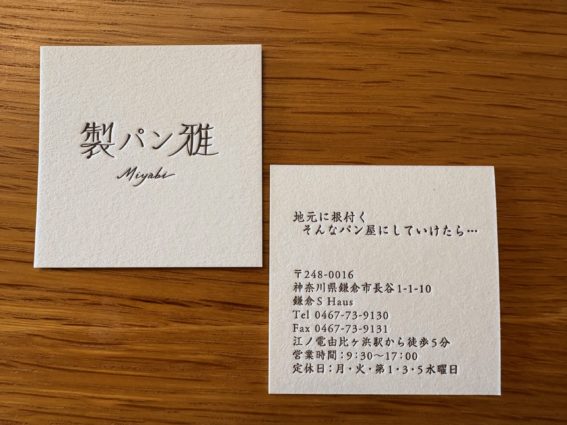 製パン雅
Miyabi
地元に根付く
そんなパン屋にしていけたら…
〒248-0016
神奈川県鎌倉市長谷1-1-10
鎌倉S Haus
Tel 0467-73-9130
Fax 0467-73-9131
江ノ電由比ヶ浜駅から徒歩5分
営業時間：9:30〜17:00
定休日：月・火・第1・3・5水曜日